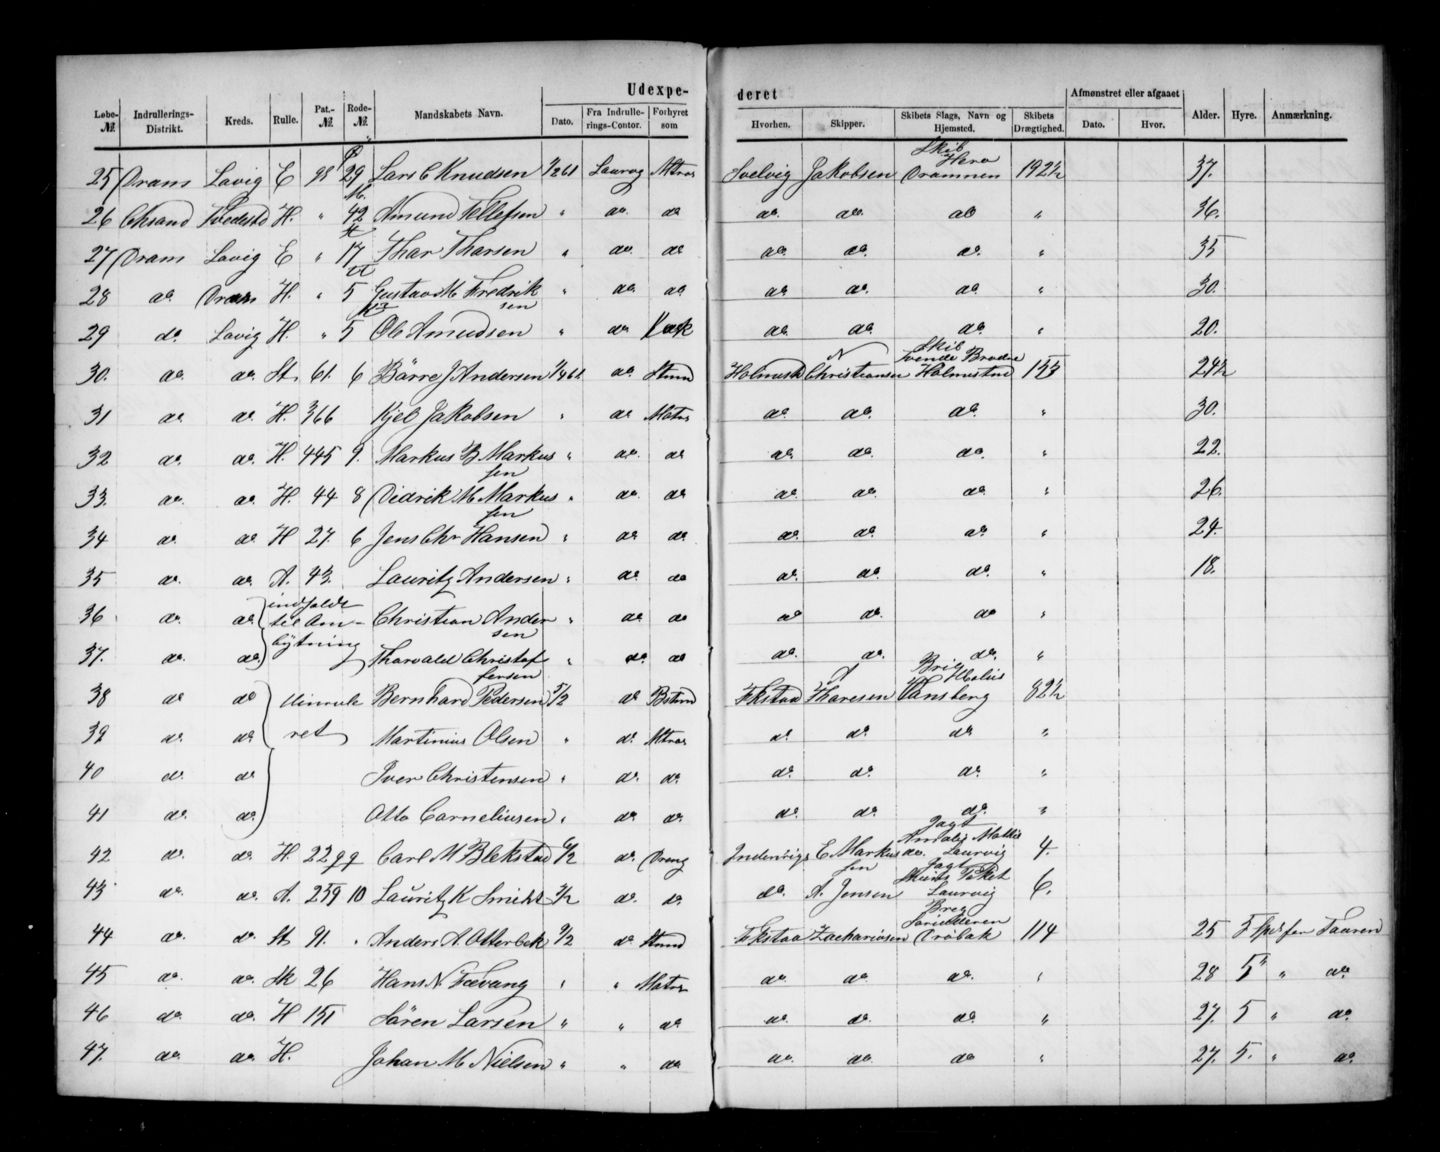 Udexpe- deret
Løbe-№. Indrullerings-Distrikt. Kreds. Rulle. Pat.-№. Rode-№. Mandskabets Navn. Dato. Fra Indrullerings-Contor. Forhyret som Hvorhen. Skipper. Skibets Slags, Navn og Hjemsted. Skibets Drægtighed. Afmønstret eller afgaaet Dato. Hvor. Alder. Hyre. Anmærkning.
25 Dram Lavig E 98 29 Lars C Knudsen 1/2 61 Laurvg Mtros Svelvig Jakobsen Skib Hero Drammen 192½ 37.
26 Chsand Tvedestd H. " 42 Amund Tellefsen " do. do do. do. do " 36.
27 Dram Lavig E " 17 Thor Thorsen " do. do do. do. do. " 35
28 do Dram H. " 5 Gustav M Fredriksen " do. do do. do. do. " 30.
29 do Lavig H. " 5 Ole Amundsen " do Kok do. do. do. " 20.
30. do. do. St 61. 6 Börre J Andersen 1/4 61 do. Stmd Holmestd N Christiansen Skib Svende Brødre Holmestrd 153 24½
31 do. do. H. 366 Kjel Jakobsen " do Matos do. do. do. " 30.
32 do. do. H. 445 9. Markus B Markussen " do. do do. do. do. " 22.
33. do. do. H. 44 8 Didrik M Markussen " do. do do. do. do. " 26.
34 do. do. H 27. 6 Jens Chr Hansen " do do. do. do. do. " 24.
35 do. do. A. 43. Lauritz Andersen " do. do do. do. do. " 18.
36 do. do indkaldt til Om- Christian Andersen " do do do do. do "
37. do. do bytning Thorvald Christoffersen " do. do do. do. do. "
38 do. do Uinrule Bernhard Pedersen 5/2 do Bstmd Fkstad Thoresen Brig Tønsberg 82½
39 do. do. ret Martinius Olsen " do. Mtros do do. do "
40 do do Iver Christensen " do. do. do. do. do. "
41 do. do. Otto Corneliusen " do. do. do. do. do. "
42 do. do. H. 2299 Carl M Blekstad 6/2 do Dreng Indenrigs E. Markussen Jagt Laurvig 4.
43. do. do. A. 239 10 Lauritz K Smidt 7/2 do. do. do. A. Jensen Jagt Laurvig 6.
44 do. do. St 91. " Anders A. Otterbek 9/2 do. Stmd Fkstad Zachariasen Brig Dröbak 114 25
45 do. do. Sk 26 Hans N. Fævang " " Matos do. do. do. " 28 5 " do.
46 do. do. H 151 Sören Larsen " " do do. do. do. " 27. 5 " do.
47. do. do. H. Johan M Nielsen " " do do. do. do " 27. 5. " do